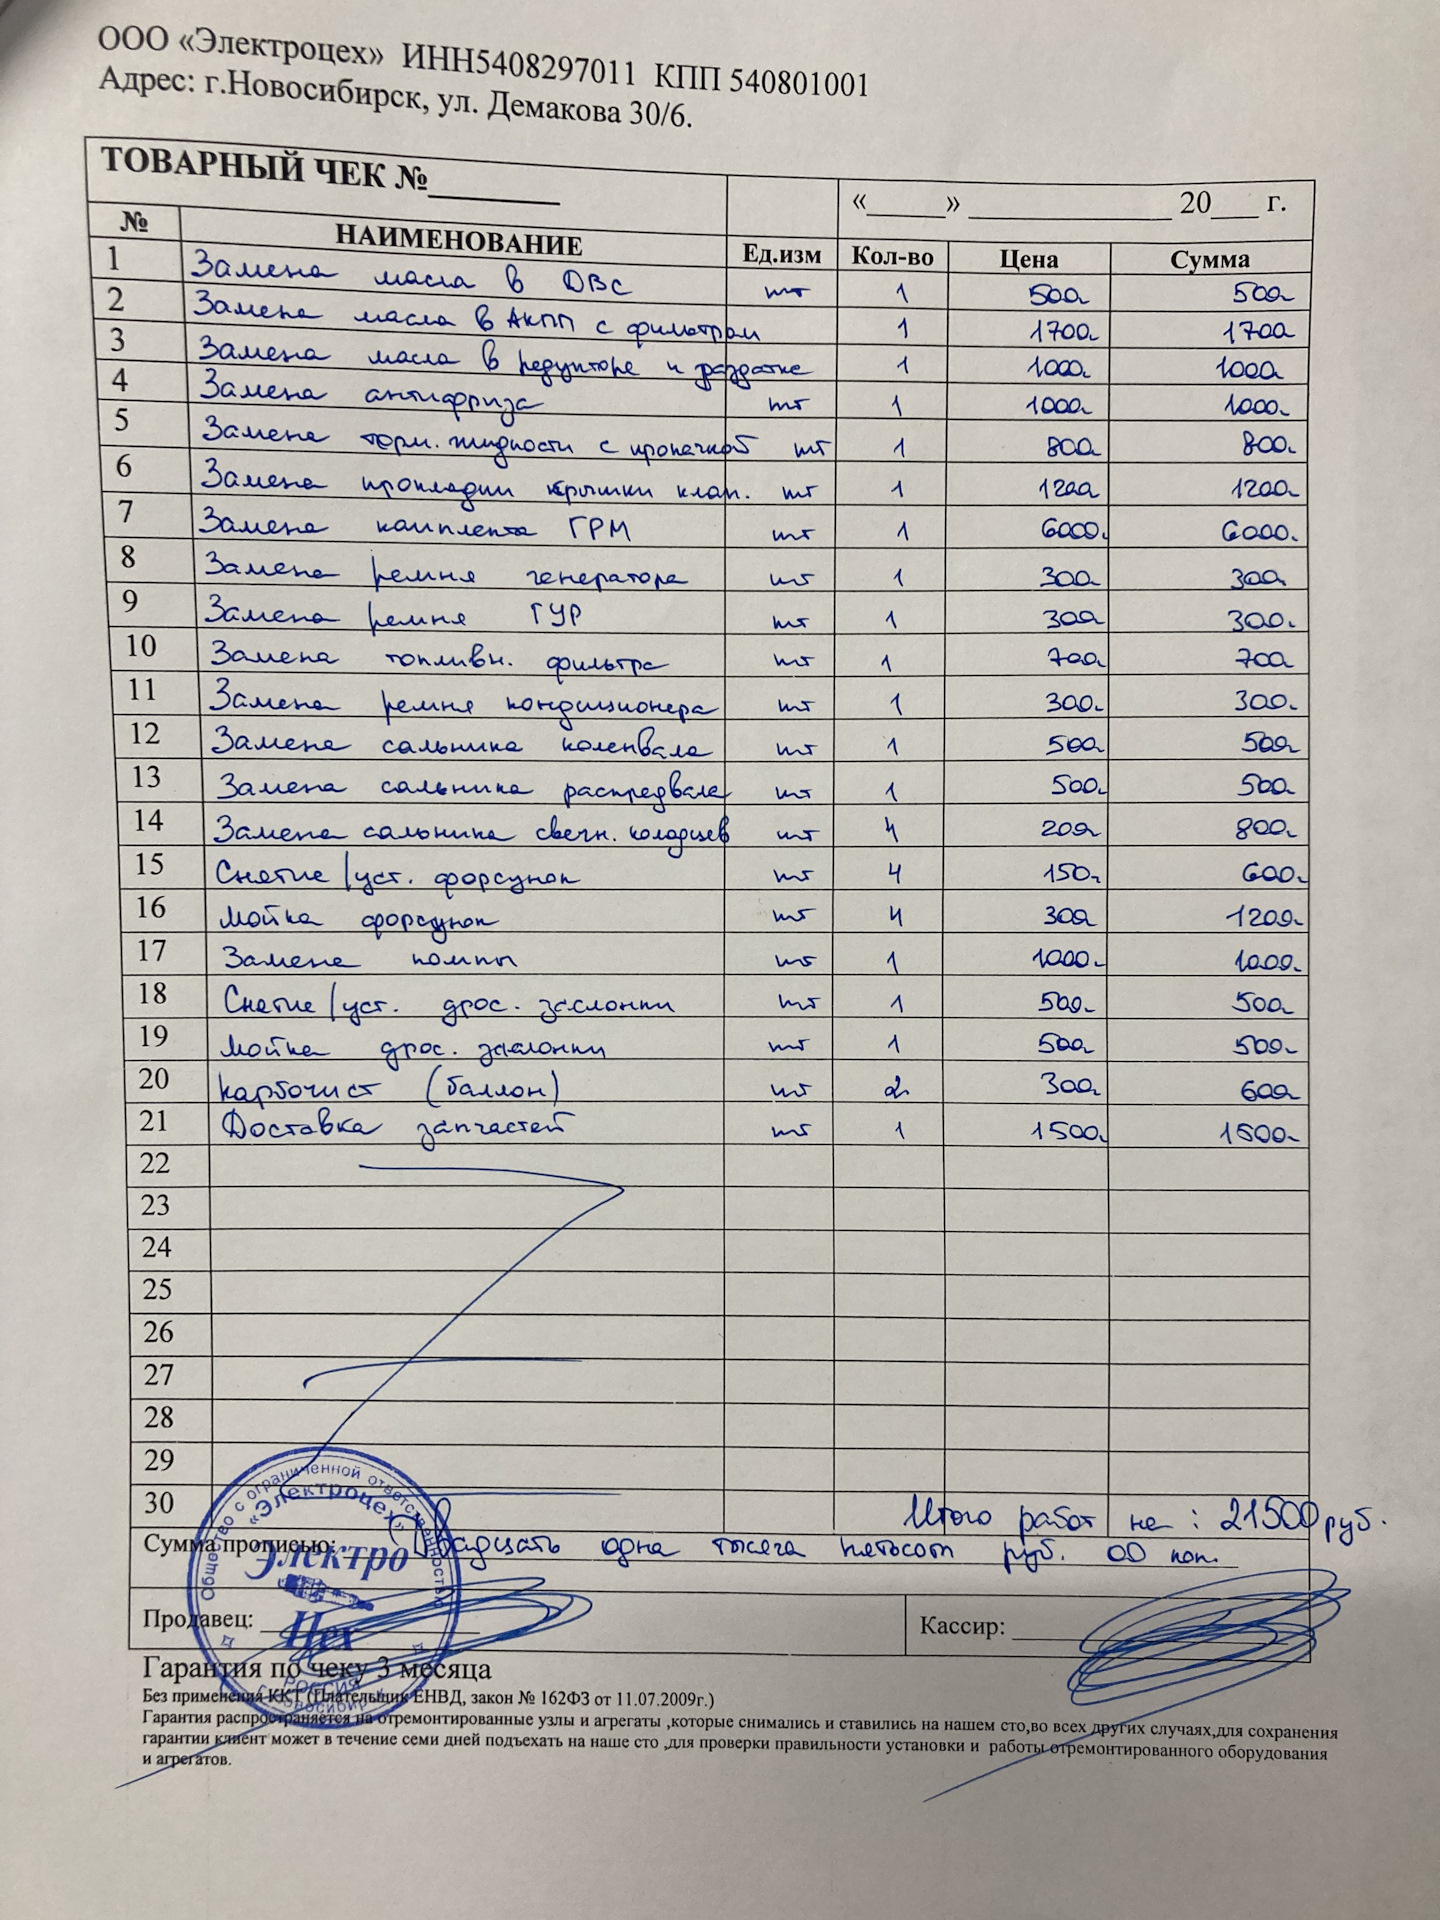 ООО «Электроцех» ИНН5408297011 КПП 540801001
Адрес: г.Новосибирск, ул. Демакова 30/6.
ТОВАРНЫЙ ЧЕК №_______ «_____» _____________ 20___ г.
№ НАИМЕНОВАНИЕ Ед.изм Кол-во Цена Сумма
1 Замена масла в ДВС шт 1 500- 500-
2 Замена масла в АКПП с фильтром 1 1700- 1700
3 Замена масла в редукторе и раздатке 1 1000- 1000
4 Замена антифриза шт 1 1000- 1000-
5 Замена торм. жидкости с прокачкой шт 1 800 800-
6 Замена прокладки крышки клап. шт 1 1200 1200-
7 Замена комплекта ГРМ шт 1 6000- 6000-
8 Замена ремня генератора шт 1 300 300-
9 Замена ремня ГУР шт 1 300 300-
10 Замена топливн. фильтра шт 1 700 700
11 Замена ремня кондиционера шт 1 300- 300-
12 Замена сальника коленвала шт 1 500 500-
13 Замена сальника распредвала шт 1 500- 500-
14 Замена сальника свечн. колодцев шт 4 200 800-
15 Снятие/уст. форсунок шт 4 150- 600-
16 Мойка форсунок шт 4 300 1200-
17 Замена помпы шт 1 1000- 1000-
18 Снятие/уст. дрос. заслонки шт 1 500- 500-
19 Мойка дрос. заслонки шт 1 500- 500-
20 Карбочист (баллон) шт 2 300- 600-
21 Доставка запчастей шт 1 1500- 1500-
22
23
24
25
26
27
28
29
30 Итого работ на: 21500 руб.
Сумма прописью: Двадцать одна тысяча пятьсот руб. 00 коп.
Продавец: Кассир:
Общество с ограниченной ответственностью
«Электроцех»
Электро
Цех
РОССИЯ
г. Новосибирск
Гарантия по чеку 3 месяца
Без применения ККТ (Плательщик ЕНВД, закон № 162ФЗ от 11.07.2009г.)
Гарантия распространяется на отремонтированные узлы и агрегаты ,которые снимались и ставились на нашем сто,во всех других случаях,для сохранения
гарантии клиент может в течение семи дней подъехать на наше сто ,для проверки правильности установки и работы отремонтированного оборудования
и агрегатов.